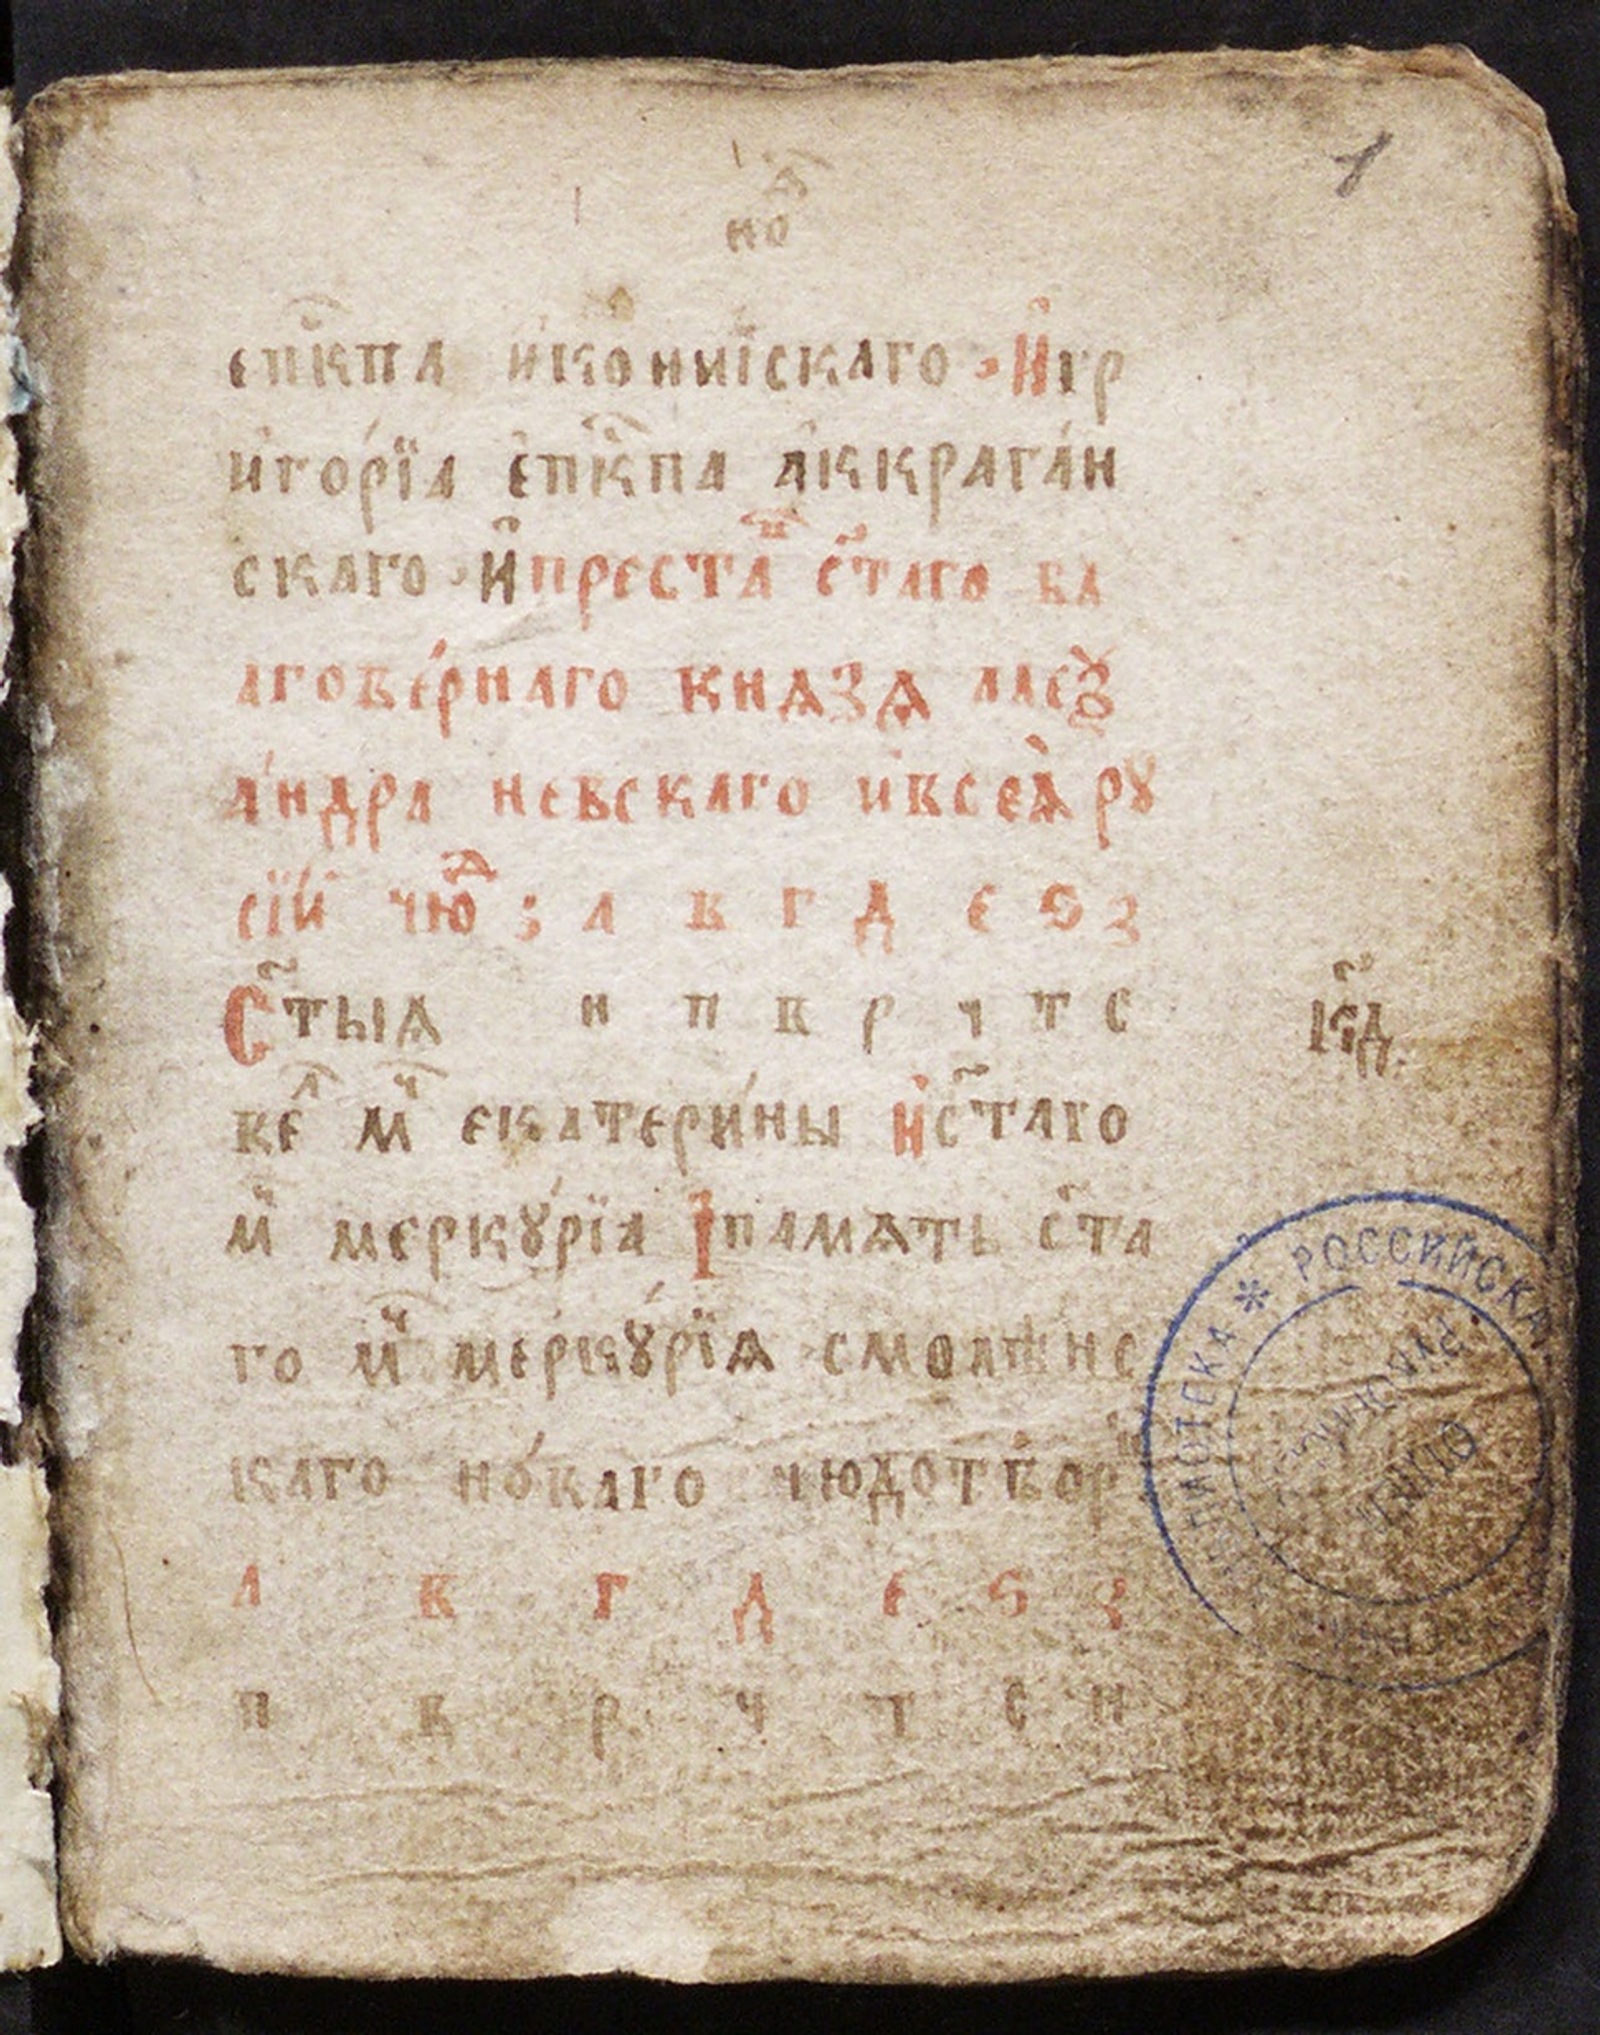 1
но҆ꙗ
еп҃кпа и҆ко̑нии́скаго · И҆гр
иго́рїа е҆п҃кпа а҆ккрага́н
скаго · И҆ преста̑ с҃таго бл
аговѣ́рнаго кнѧзѧ алеѯ
а́ндра невскаго и всеѧ̀ рꙋ
сїи́ чюд ; а в г д е ѕ з
С҃тыѧ н п в р ч т с
ве́л м҃ч екатери́ны и с҃таго
м҃ч меркꙋ́рїа І памѧть с҃та
го м҃ч меркꙋ́рїѧ смоленс
каго но́ваго чюдотвор
а в г д е ѕ з
п в р ч т с н
к҃д
РОССИЙСКАЯ